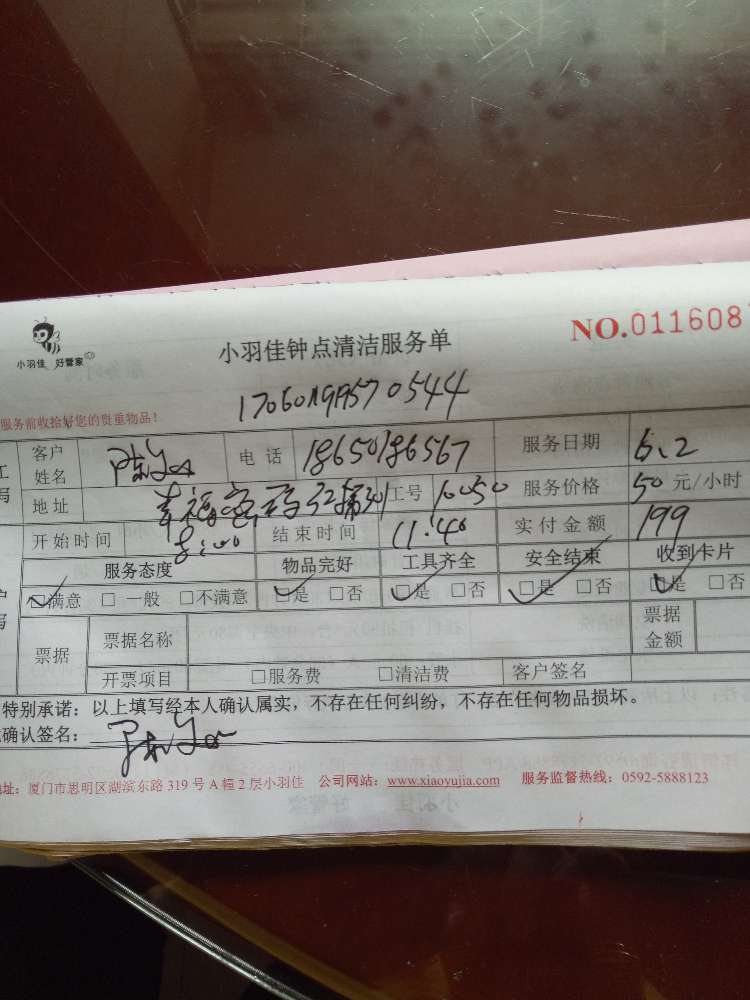 小羽佳 好管家
小羽佳钟点清洁服务单
NO.011608
服务前收拾好您的贵重物品！
客户姓名 陈 电话 18650186567 服务日期 6.2
地址 幸福 工号 10050 服务价格 50 元/小时
开始时间 8:00 结束时间 11:40 实付金额 199
服务态度 物品完好 工具齐全 安全结束 收到卡片
☑满意 □ 一般 □不满意 ☑是 □否 ☑是 □否 ☑是 □否 ☑是 □否
票据 票据名称 票据金额
开票项目 □服务费 □清洁费 客户签名
特别承诺：以上填写经本人确认属实，不存在任何纠纷，不存在任何物品损坏。
确认签名：
地址：厦门市思明区湖滨东路 319 号 A 幢 2 层小羽佳 公司网站：www.xiaoyujia.com 服务监督热线：0592-5888123